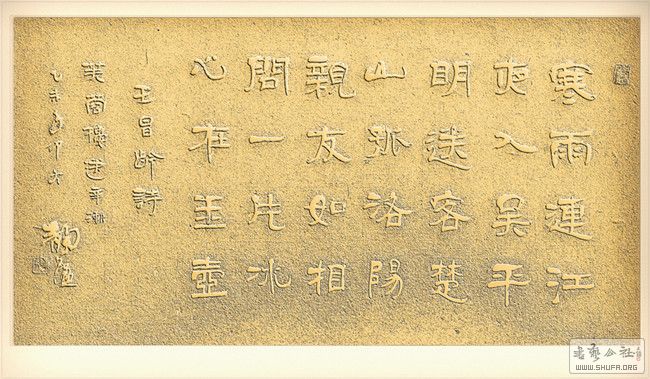 寒雨連江
夜入吴平
明送客楚
山孤洛陽
親友如相
問一片冰
心在玉壺
王昌齡詩
芙蓉樓送辛漸
乙未
書藝公社
WWW.SHUFA.ORG